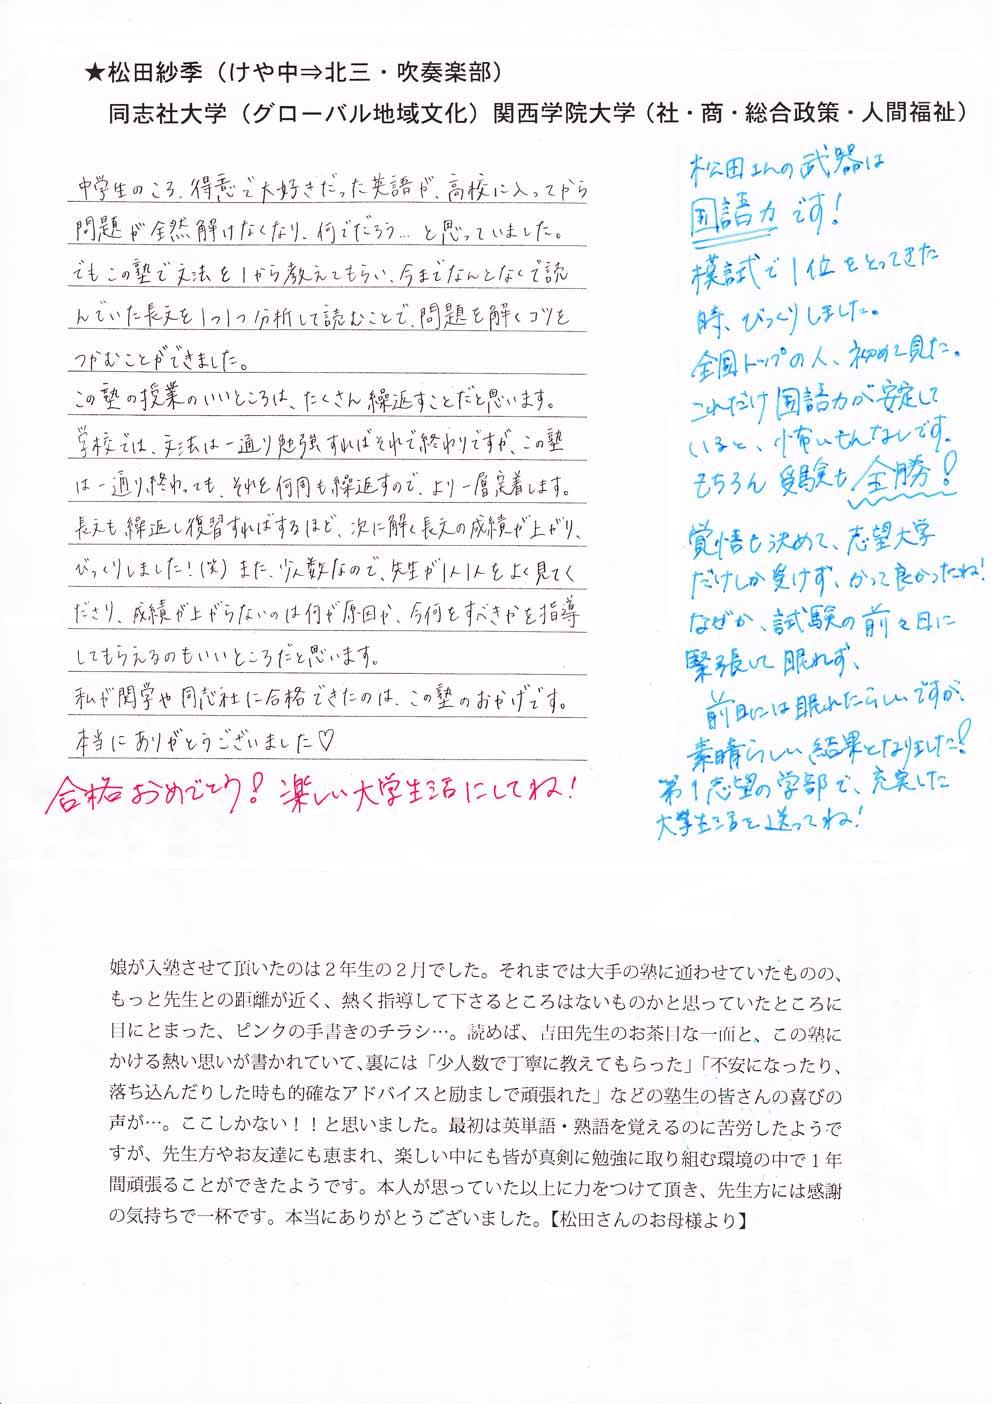 ★松田紗季（けや中⇒北三・吹奏楽部）
同志社大学（グローバル地域文化）関西学院大学（社・商・総合政策・人間福祉）
中学生のころ、得意で大好きだった英語が、高校に入ってから
問題が全然解けなくなり、何でだろう…と思っていました。
でもこの塾で文法を1から教えてもらい、今までなんとなくで読
んでいた長文を1つ1つ分析して読むことで、問題を解くコツを
つかむことができました。
この塾の授業のいいところは、たくさん繰返すことだと思います。
学校では、文法は一通り勉強すればそれで終わりですが、この塾
は一通り終わっても、それを何回も繰返すので、より一層定着します。
長文も繰返し復習すればするほど、次に解く長文の成績が上がり、
びっくりしました！(笑) また、少人数なので、先生が1人1人をよく見てく
ださり、成績が上がらないのは何が原因か、今何をすべきかを指導
してもらえるのもいいところだと思います。
私が関学や同志社に合格できたのは、この塾のおかげです。
本当にありがとうございました♡
合格おめでとう！楽しい大学生活にしてね！
松田さんの武器は
国語力です！
模試で1位をとってきた
時、びっくりしました。
全国トップの人、初めて見た。
これだけ国語力が安定して
いると、怖いもんなしです。
もちろん受験も全勝！
覚悟も決めて、志望大学
だけしか受けず、かって良かったね！
なぜか、試験の前々日に
緊張して眠れず、
前日には眠れたらしいですが、
素晴らしい結果となりました！
第1志望の学部で、充実した
大学生活を送ってね！
娘が入塾させて頂いたのは２年生の２月でした。それまでは大手の塾に通わせていたものの、
もっと先生との距離が近く、熱く指導して下さるところはないものかと思っていたところに
目にとまった、ピンクの手書きのチラシ…。読めば、吉田先生のお茶目な一面と、この塾に
かける熱い思いが書かれていて、裏には「少人数で丁寧に教えてもらった」「不安になったり、
落ち込んだりした時も的確なアドバイスと励ましで頑張れた」などの塾生の皆さんの喜びの
声が…。ここしかない！！と思いました。最初は英単語・熟語を覚えるのに苦労したようで
すが、先生方やお友達にも恵まれ、楽しい中にも皆が真剣に勉強に取り組む環境の中で１年
間頑張ることができたようです。本人が思っていた以上に力をつけて頂き、先生方には感謝
の気持ちで一杯です。本当にありがとうございました。【松田さんのお母様より】